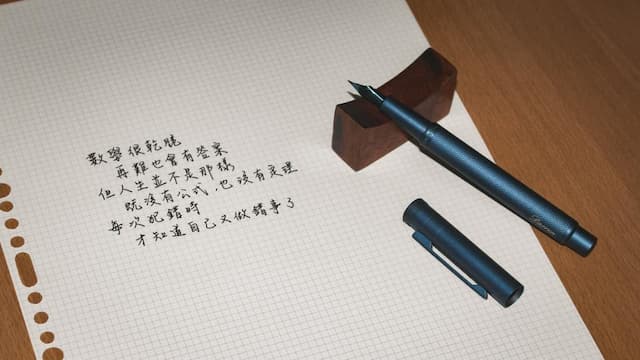 數學很乾脆
再難也會有答案
但人生並不是那樣
既沒有公式，也沒有定理
每次犯錯時
才知道自己又做錯事了